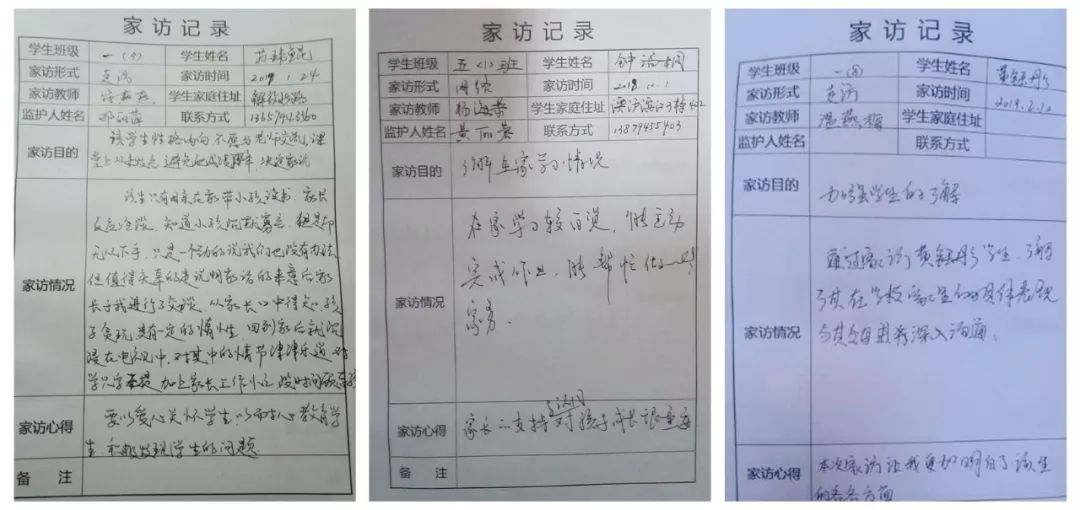 家访记录
学生班级 一(9) 学生姓名
家访形式 走访 家访时间 2019.1.24
家访教师 学生家庭住址 解放北路
监护人姓名 邓 联系方式
家访目的 该学生性格内向,不愿与老师交流,课
堂上从未发言,
家访情况 该生只有母亲在家带小孩读书,家长
反应冷淡,知道小孩沉默寡言,但是却
无从下手,只是一个劲的说我们也没有办法
但值得庆幸的是说明家访的来意后家
长于我进行了交谈,从家长口中得知,孩
子贪玩具有一定的惰性,回到家后就沉
浸在电视中,对其中的情节津津乐道,对
学只字不提,加上家长工作忙,没时间
家访心得 要以爱心关怀学生,以耐心教育学
生,积极发现学生的问题.
备 注
家访记录
学生班级 五(1)班 学生姓名
家访形式 家访时间 2018.10.1
家访教师 杨海 学生家庭住址
监护人姓名 黄丽 联系方式 13879455403
家访目的 了解在家学习情况
家访情况 在家学习较自觉,能主动
完成作业,能帮忙做一些
家务.
家访心得 家长的支持对孩子成长很重要
备 注
家访记录
学生班级 一(8) 学生姓名 黄
家访形式 走访 家访时间
家访教师 温燕梅 学生家庭住址 2019.2.12
监护人姓名 联系方式
家访目的 加强学生的了解
家访情况 通过家访黄 学生,了解
了其在学校、家里的具体表现
与其父母进行深入沟通.
家访心得 本次家访让我更加明白了该生
的各各方面